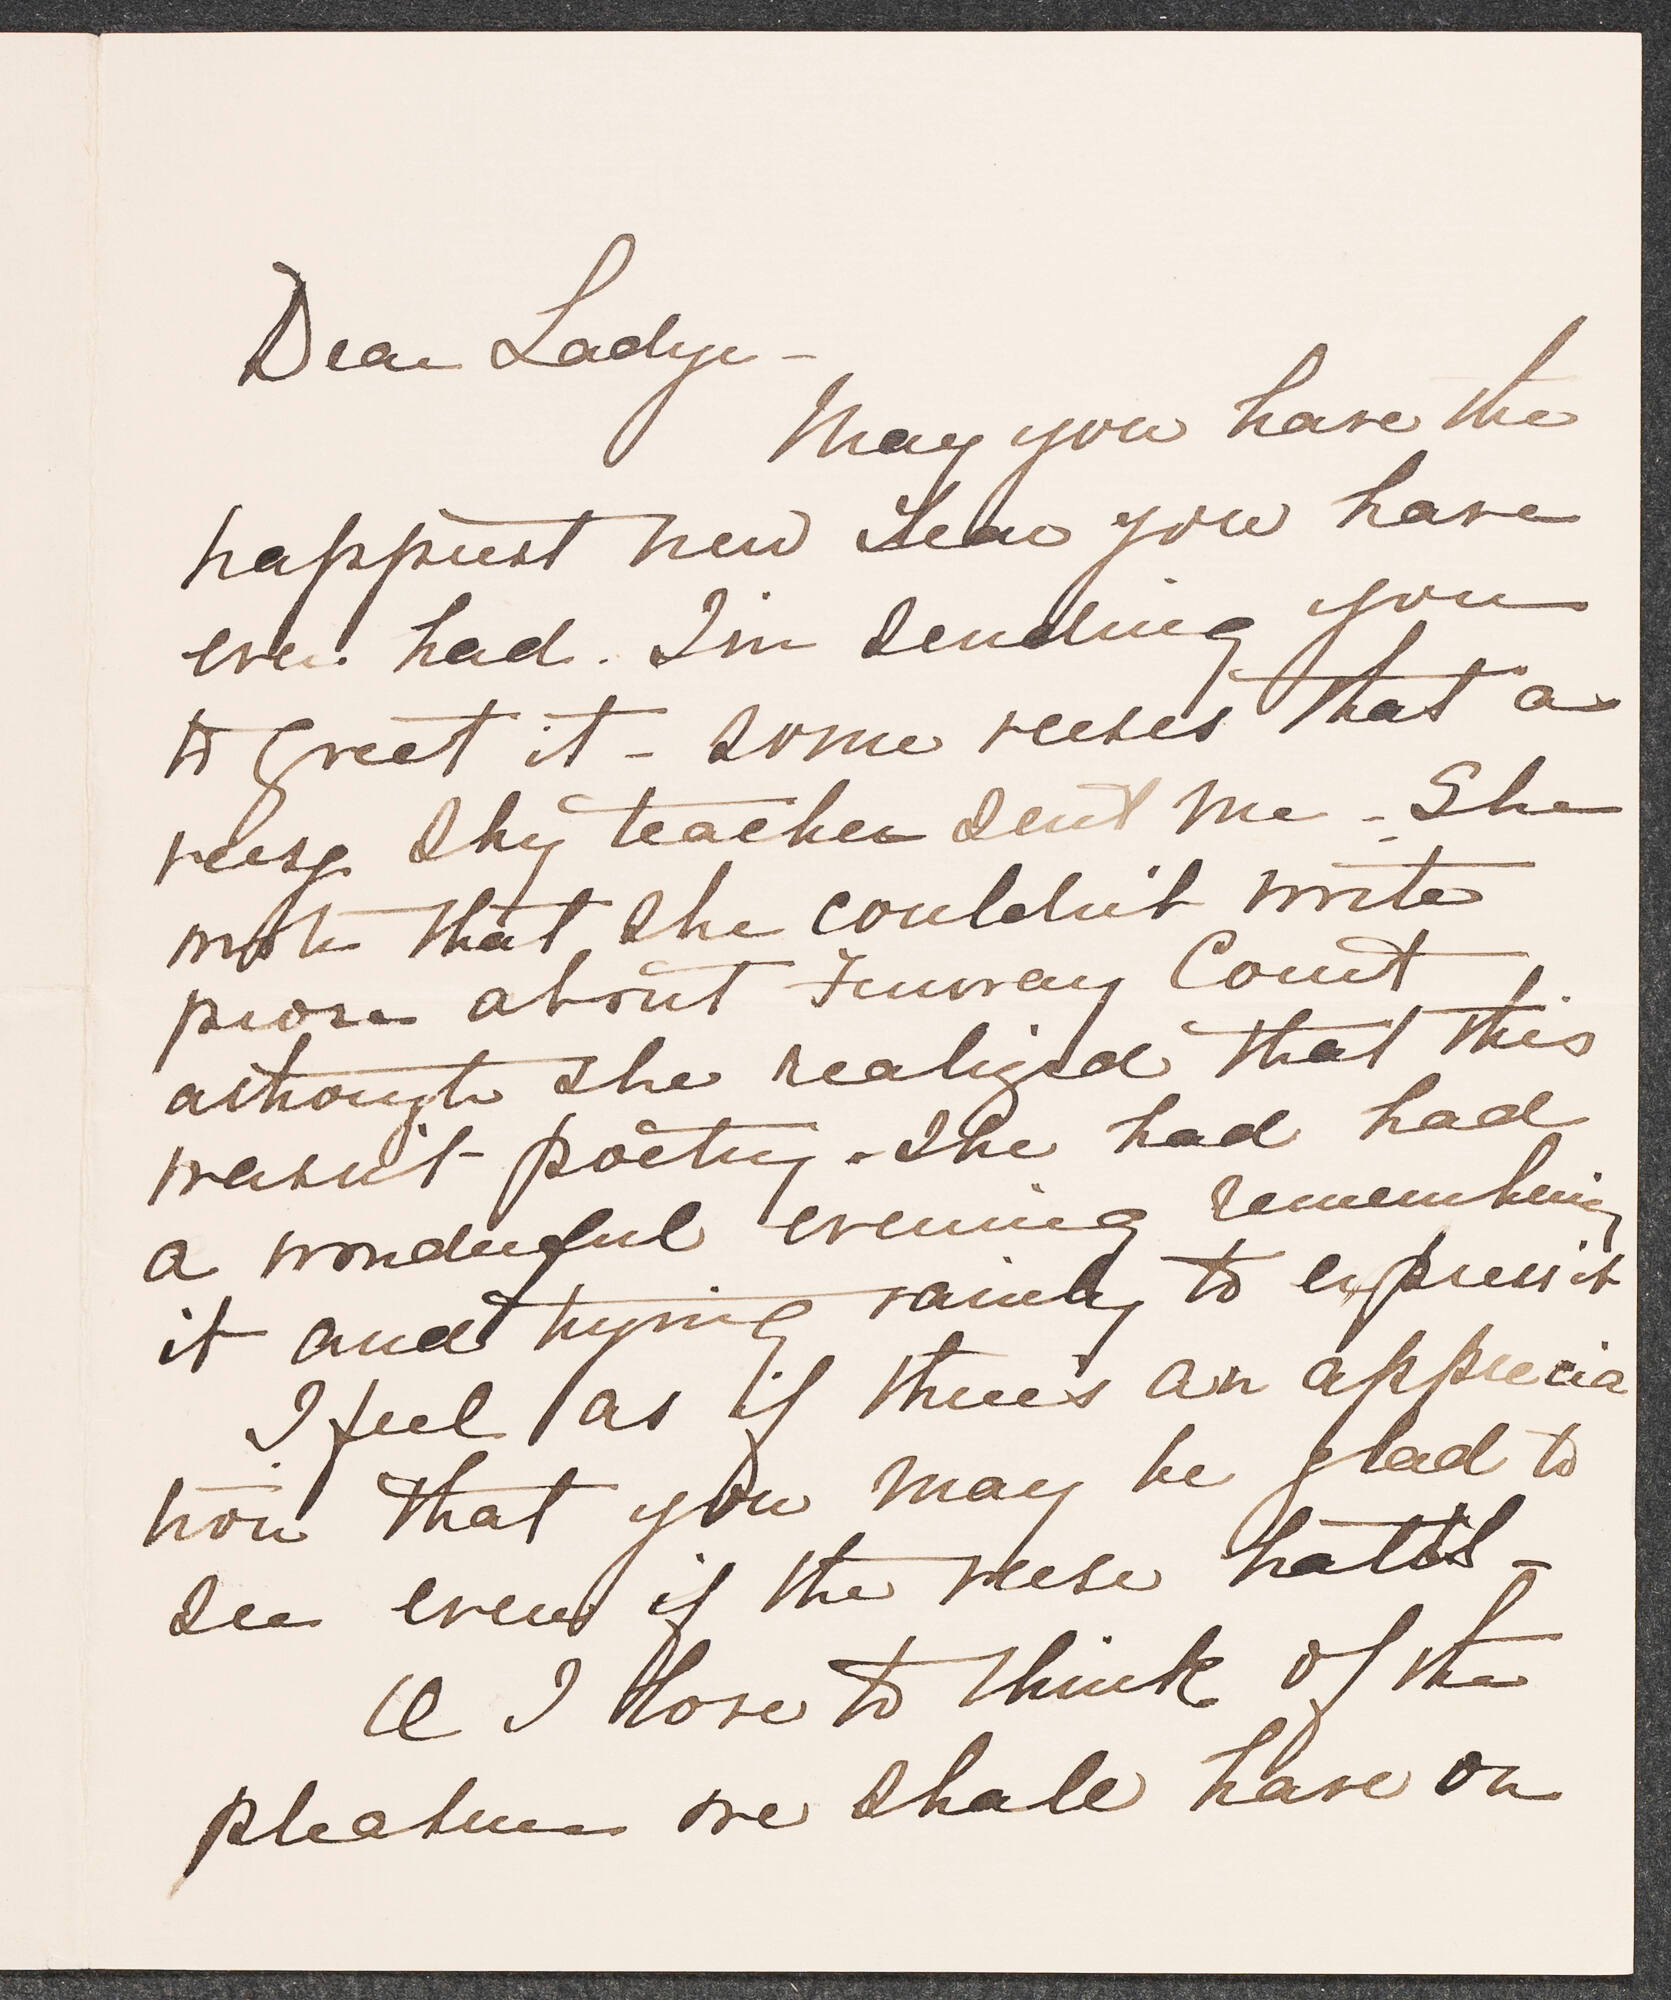 Dear Ladye -
May you have the
happiest new Year you have
ever had. I'm sending you
to greet it - some verses that a
very shy teacher sent me - She
wrote that she couldn't write
prose about Fenway Court
although she realized that this
wasn't poetry. She had had
a wonderful evening remembering
it and trying vainly to express it
I feel as if there's an apprecia
tion that you may be glad to
see even if the verse halts -
I love to think of the
pleasure we shall have on